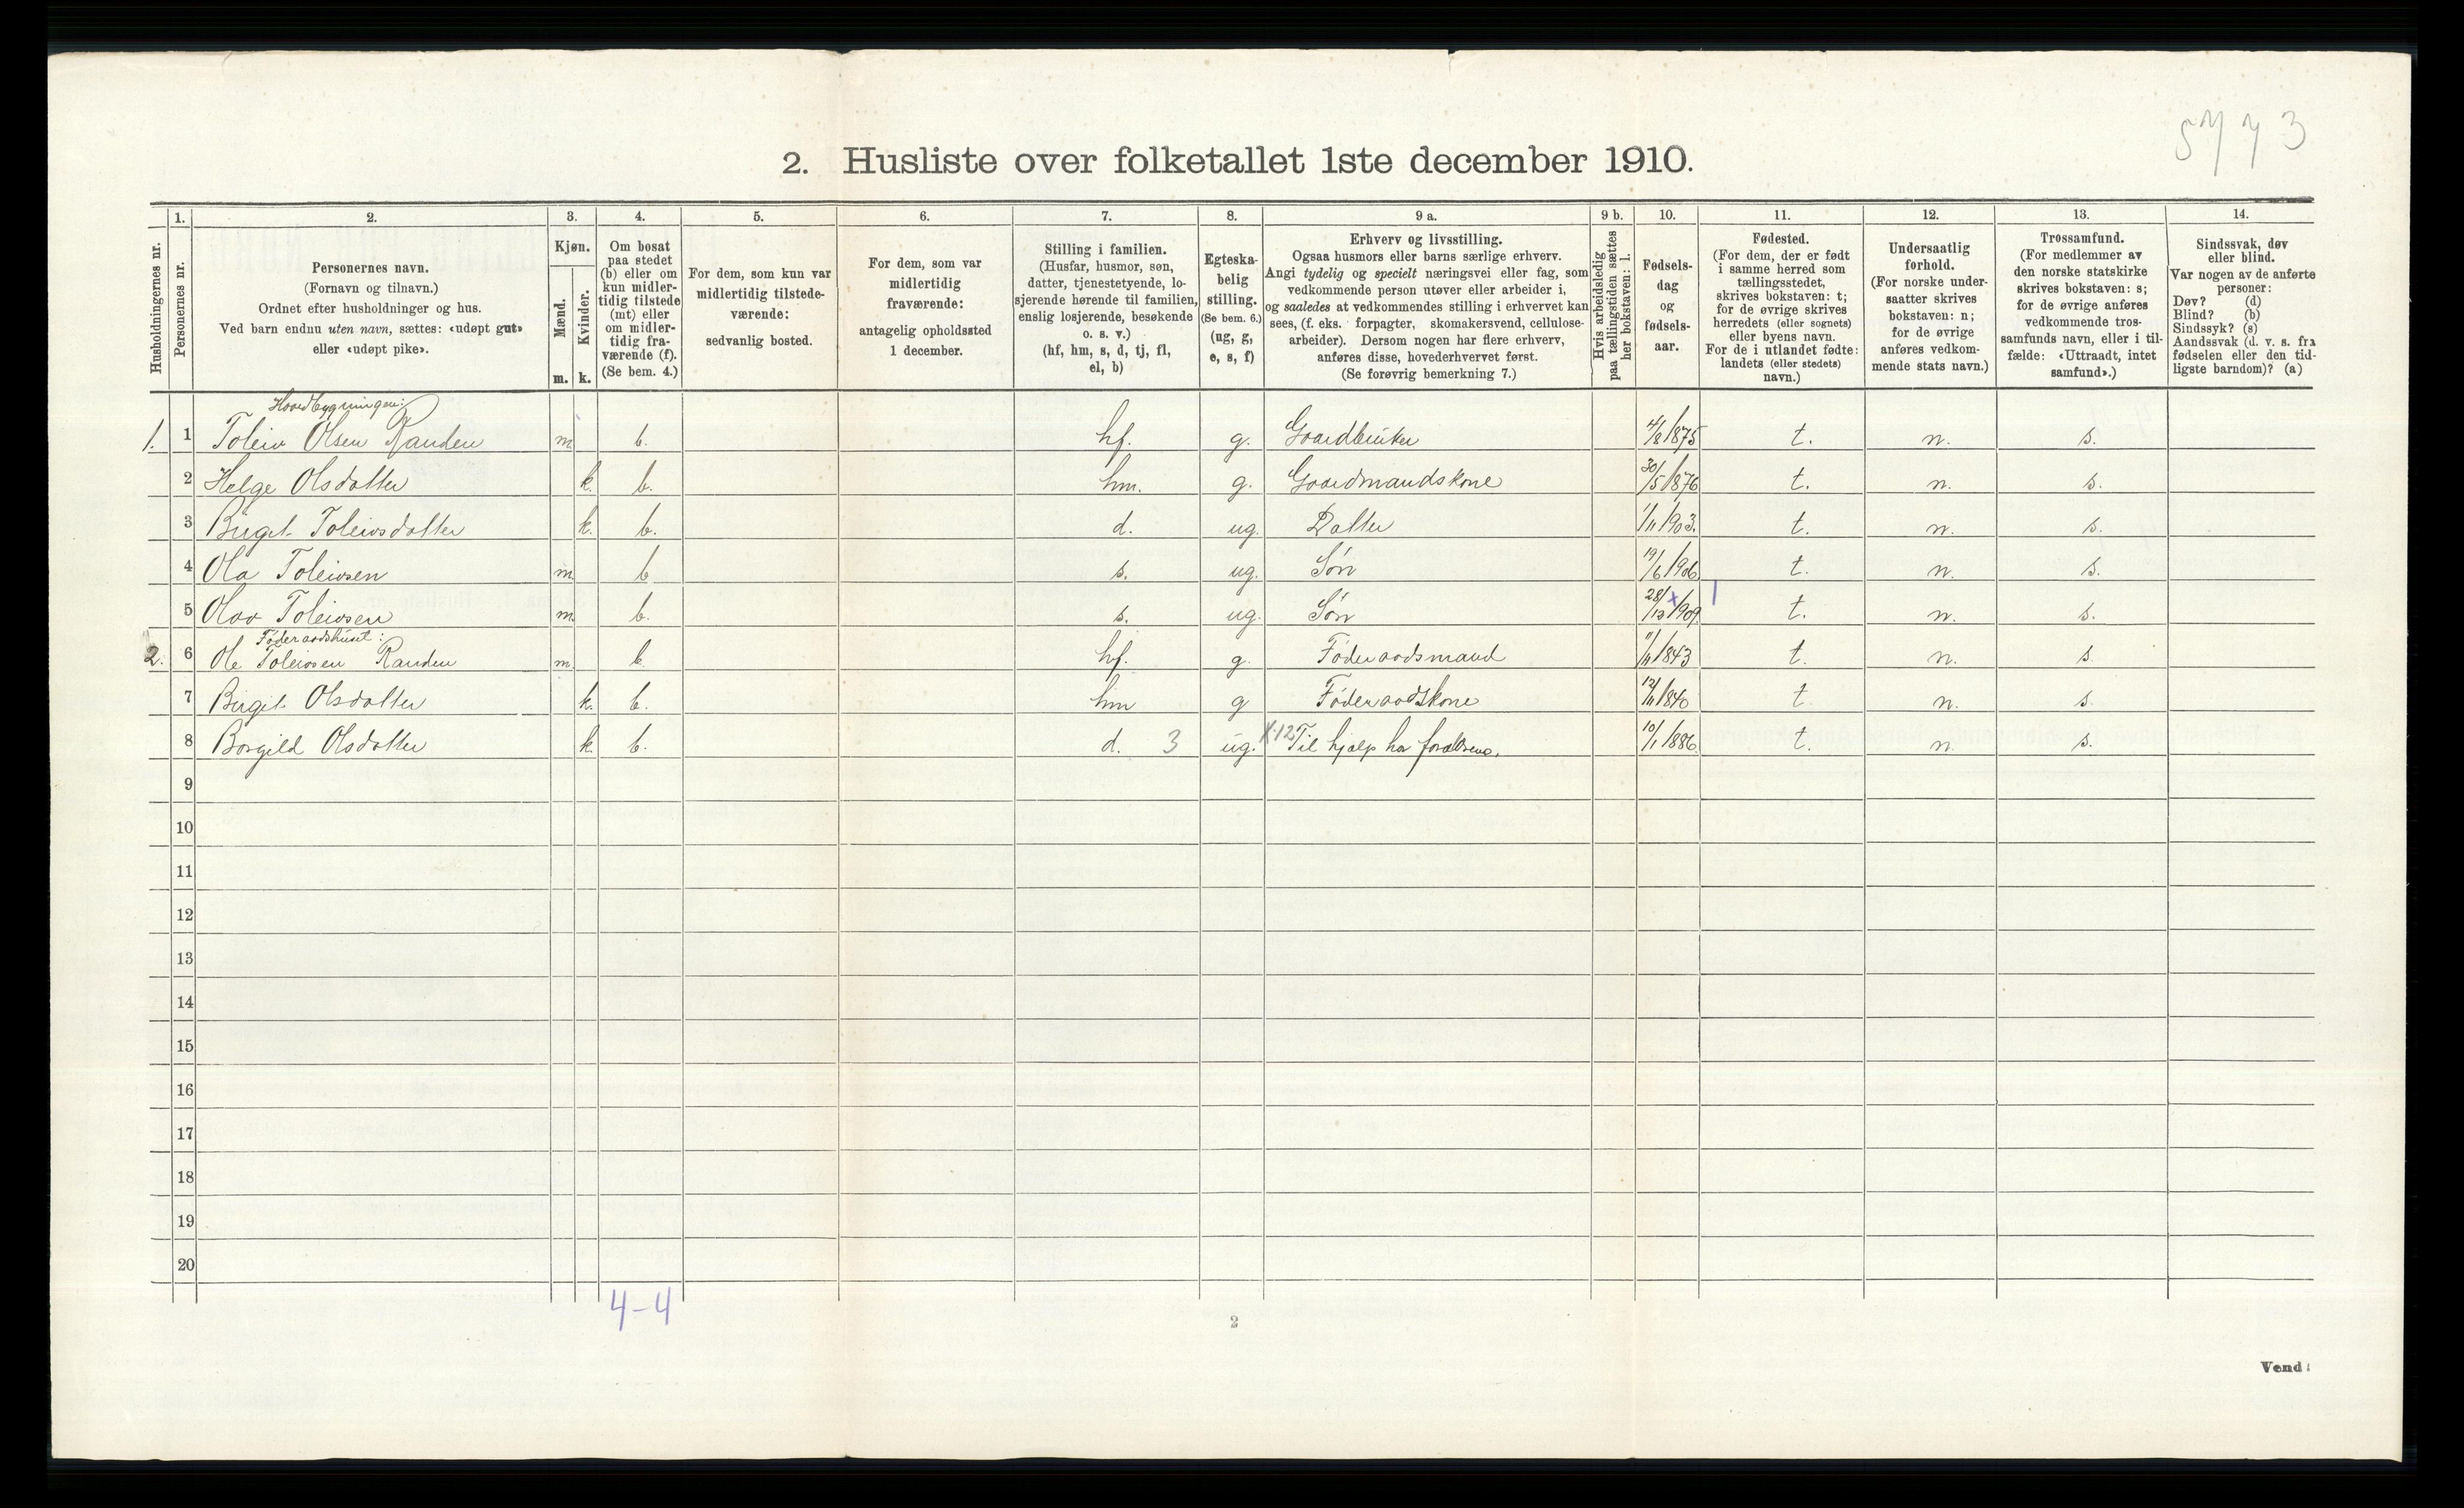 5773
2. Husliste over folketallet 1ste december 1910.
Husholdningernes nr.
1. Personernes nr.
2. Personernes navn. (Fornavn og tilnavn.) Ordnet efter husholdninger og hus. Ved barn endnu uten navn, sættes: «udøpt gut» eller «udøpt pike».
3. Kjøn. Mænd. m. Kvinder. k.
4. Om bosat paa stedet (b) eller om kun midler-tidig tilstede (mt) eller om midler-tidig fra-værende (f). (Se bem. 4.)
5. For dem, som kun var midlertidig tilstede-værende: sedvanlig bosted.
6. For dem, som var midlertidig fraværende: antagelig opholdssted 1 december.
7. Stilling i familien. (Husfar, husmor, søn, datter, tjenestetyende, lo-sjerende hørende til familien, enslig losjerende, besøkende o. s. v.) (hf, hm, s, d, tj, fl, el, b)
8. Egteska-belig stilling. (Se bem. 6.) (ug, g, e, s, f)
9 a. Erhverv og livsstilling. Ogsaa husmors eller barns særlige erhverv. Angi tydelig og specielt næringsvei eller fag, som vedkommende person utøver eller arbeider i, og saaledes at vedkommendes stilling i erhvervet kan sees, (f. eks. forpagter, skomakersvend, cellulose-arbeider). Dersom nogen har flere erhverv, anføres disse, hovederhvervet først. (Se forøvrig bemerkning 7.)
9 b. Hvis arbeidsledig paa tællingstiden sættes her bokstaven: l.
10. Fødsels-dag og fødsels-aar.
11. Fødested. (For dem, der er født i samme herred som tællingsstedet, skrives bokstaven: t; for de øvrige skrives herredets (eller sognets) eller byens navn. For de i utlandet fødte: landets (eller stedets) navn.)
12. Undersaatlig forhold. (For norske under-saatter skrives bokstaven: n; for de øvrige anføres vedkom-mende stats navn.)
13. Trossamfund. (For medlemmer av den norske statskirke skrives bokstaven: s; for de øvrige anføres vedkommende tros-samfunds navn, eller i til-fælde: «Uttraadt, intet samfund».)
14. Sindssvak, døv eller blind. Var nogen av de anførte personer: Døv? (d) Blind? (b) Sindssyk? (s) Aandssvak (d. v. s. fra fødselen eller den tid-ligste barndom)? (a)
Hovedbygningen:
1. 1 Toleiv Olsen Randen m. b. hf. g. Gaardbruker 4/8 1875 t. n. s.
2 Helge Olsdatter k. b. hm. g. Gaardmandskone 30/5 1876 t. n. s.
3 Birgit Toleivsdatter k. b. d. ug. Datter 1/11 1903. t. n. s.
4 Ola Toleivsen m. b s. ug. Søn 19/6 1906. t. n. s.
5 Olav Toleivsen m. b. s. ug. Søn 28/12 x 1909. | t. n. s.
Føderaadshuset:
2. 6 Ole Toleivsen Randen m. b. hf. g. Føderaadsmand 11/11 1843 t. n. s.
7 Birgit Olsdatter k. b. hm g Føderaadskone 12/11 1840 t n. s.
8 Borgild Olsdatter k. b. d. 3 ug. Til hjælp hos forældrene. 10/1 1886. t. n. s.
9
10
11
12
13
14
15
16
17
18
19
20
4-4
2
Vend!